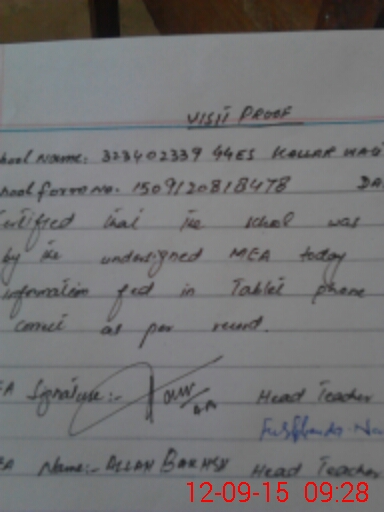 VISIT PROOF
hool Name: 323402339 GGES KALLAR WAL
hool form No. 1509120818478 DA
ertified that the school was
by the undersigned MEA today
information fed in Tablet phone
correct as per record.
EA Signature:- Head Teacher
EA Name:- ALLAH BAKHSH Head Teacher
12-09-15 09:28